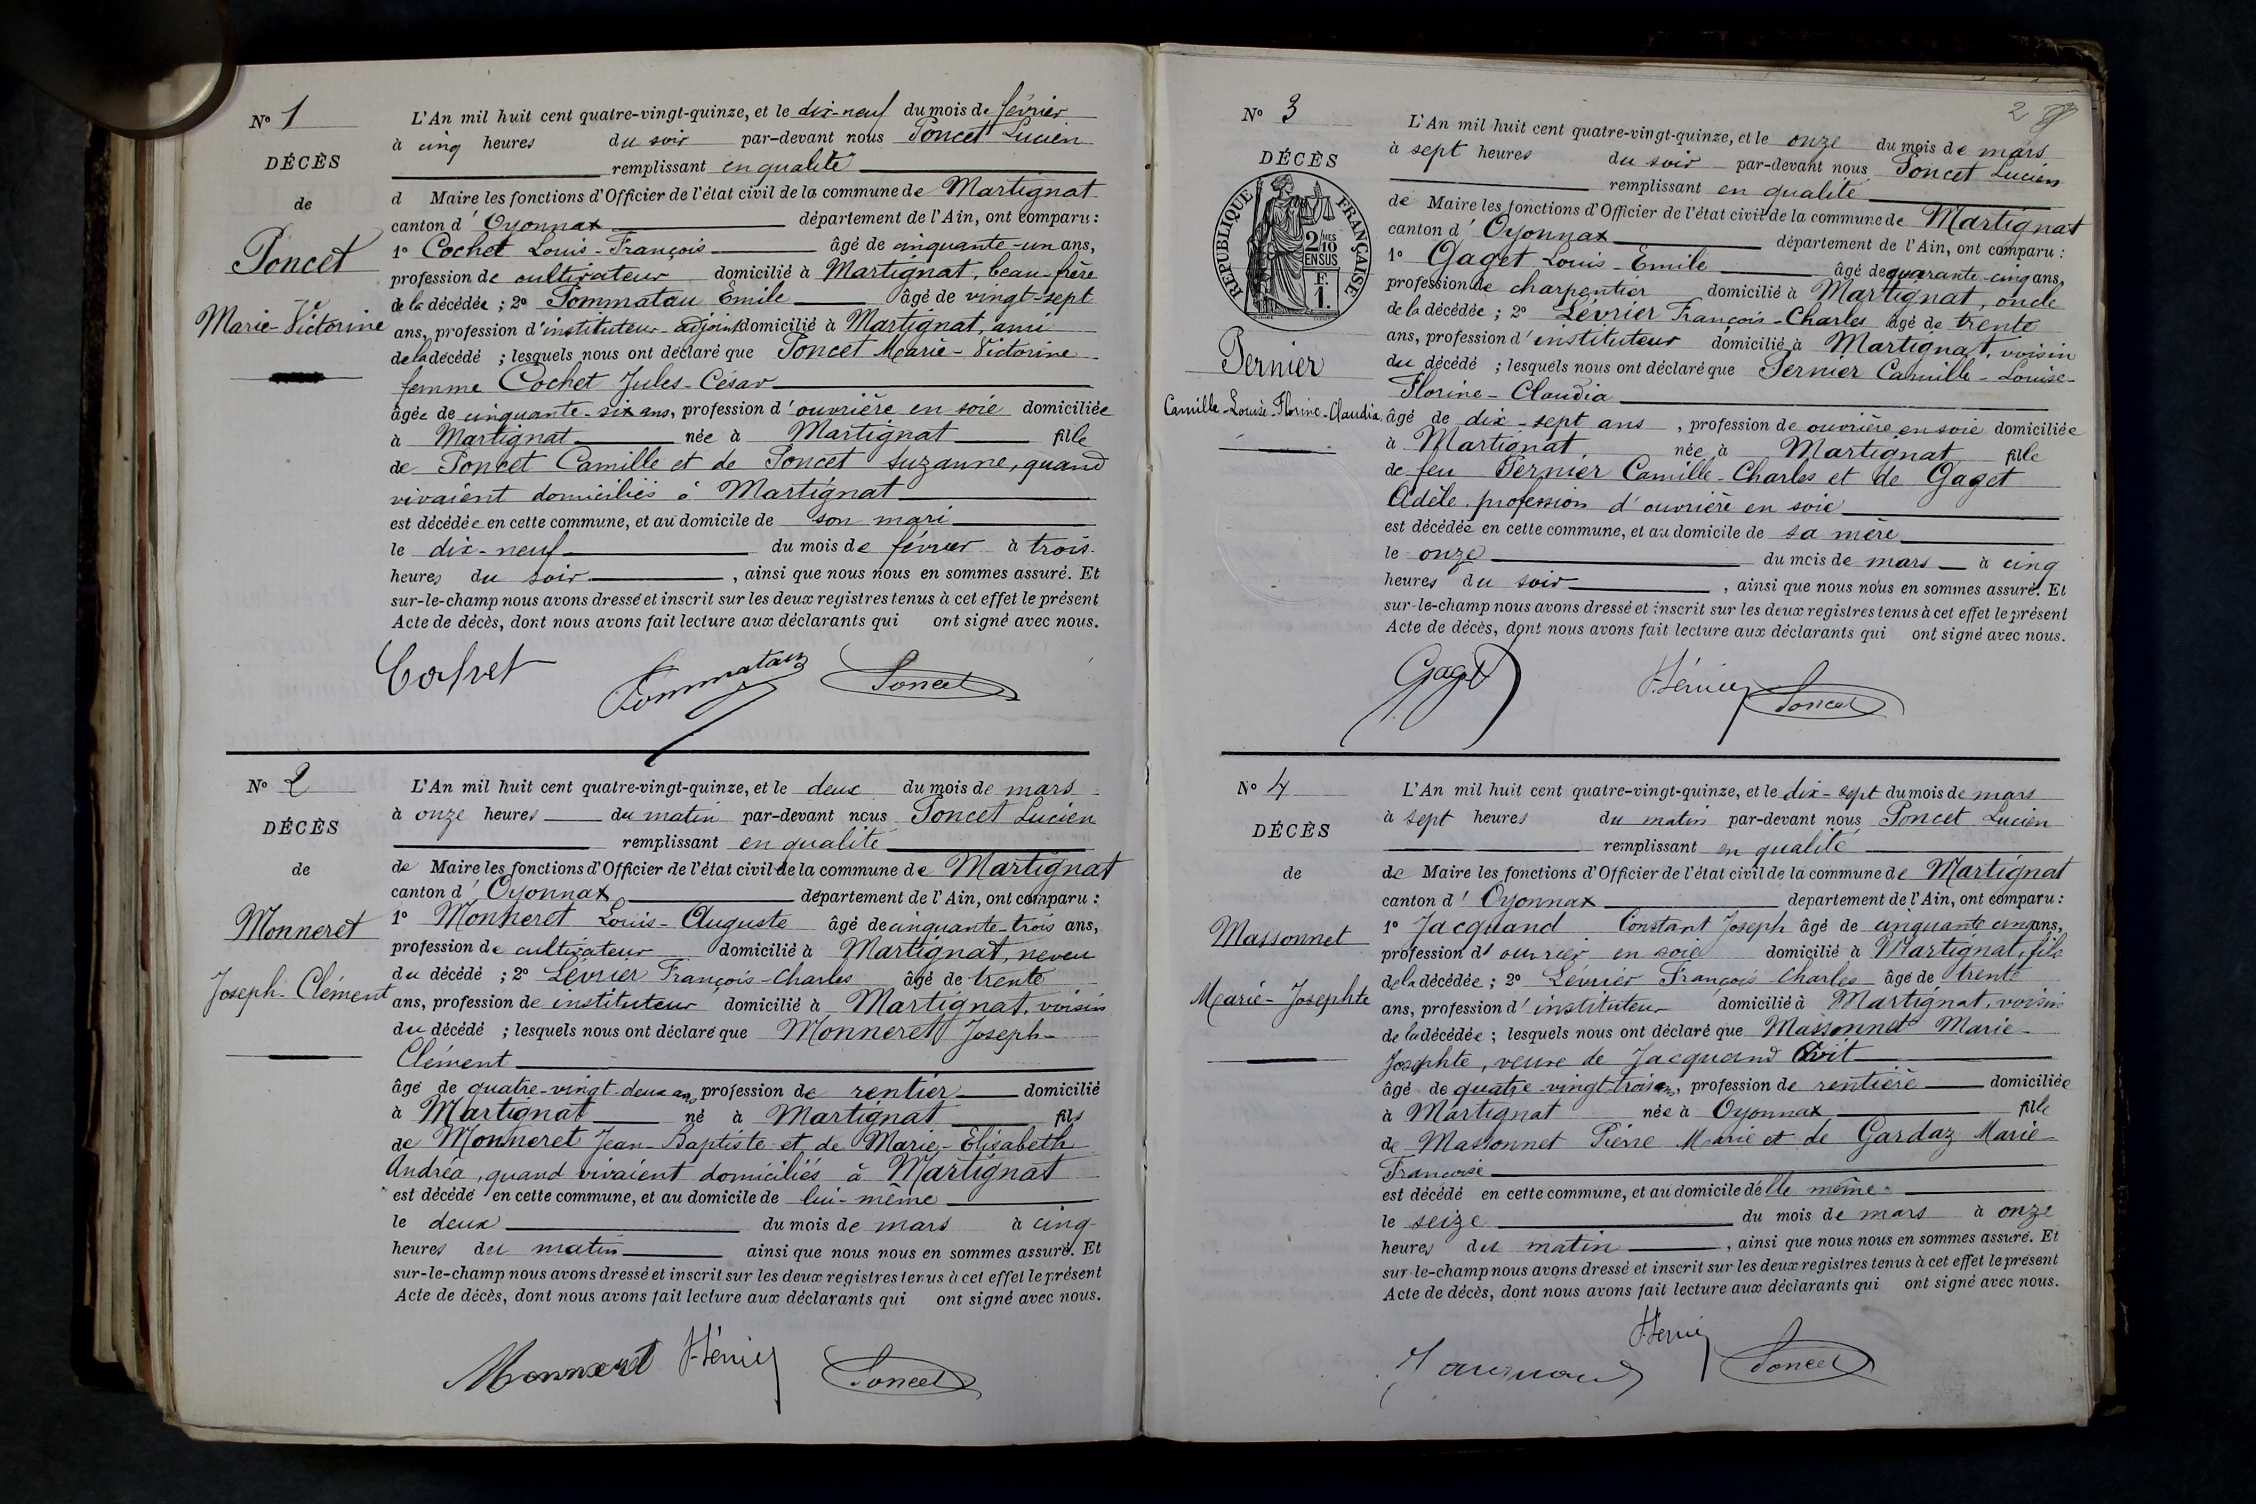 Nº 1
DÉCÈS
de
Poncet
Marie-Victorine
L'An mil huit cent quatre-vingt-quinze, et le dix-neuf du mois de février
à cinq heures du soir par-devant nous Poncet Lucien
remplissant en qualité
d Maire les fonctions d'Officier de l'état civil de la commune de Martignat
canton d'Oyonnax département de l'Ain, ont comparu :
1º Cochet Louis-François âgé de cinquante-un ans,
profession de cultivateur domicilié à Martignat, beau-frère
de la décédée ; 2º Pommatau Emile âgé de vingt-sept
ans, profession d'instituteur-adjoint domicilié à Martignat, ami
de la décédé ; lesquels nous ont déclaré que Poncet Marie-Victorine
femme Cochet Jules-César
âgée de cinquante-six ans, profession d'ouvrière en soie domiciliée
à Martignat née à Martignat fille
de Poncet Camille et de Poncet Suzanne, quand
vivaient domiciliés à Martignat
est décédée en cette commune, et au domicile de son mari
le dix-neuf du mois de février à trois
heures du soir, ainsi que nous nous en sommes assuré. Et
sur-le-champ nous avons dressé et inscrit sur les deux registres tenus à cet effet le présent
Acte de décès, dont nous avons fait lecture aux déclarants qui ont signé avec nous.
Cochet Pommatau Poncet
Nº 2
DÉCÈS
de
Monneret
Joseph-Clément
L'An mil huit cent quatre-vingt-quinze, et le deux du mois de mars
à onze heures du matin par-devant nous Poncet Lucien
remplissant en qualité
de Maire les fonctions d'Officier de l'état civil de la commune de Martignat
canton d'Oyonnax département de l'Ain, ont comparu :
1º Monneret Louis-Auguste âgé de cinquante-trois ans,
profession de cultivateur domicilié à Martignat, neveu
du décédé ; 2º Lévrier François-Charles âgé de trente
ans, profession de instituteur domicilié à Martignat, voisin
du décédé ; lesquels nous ont déclaré que Monneret Joseph-
Clément
âgé de quatre-vingt-deux ans, profession de rentier domicilié
à Martignat né à Martignat fils
de Monneret Jean-Baptiste et de Marie-Elisabeth
Andréa, quand vivaient domiciliés à Martignat
est décédé en cette commune, et au domicile de lui-même
le deux du mois de mars à cinq
heures du matin ainsi que nous nous en sommes assuré. Et
sur-le-champ nous avons dressé et inscrit sur les deux registres tenus à cet effet le présent
Acte de décès, dont nous avons fait lecture aux déclarants qui ont signé avec nous.
Monneret Lévrier Poncet
2
Nº 3
DÉCÈS
RÉPUBLIQUE FRANÇAISE
2/10 MES
EN SUS
F.
1.
Pernier
Camille-Louise-Florine-Claudia
L'An mil huit cent quatre-vingt-quinze, et le onze du mois de mars
à sept heures du soir par-devant nous Poncet Lucien
remplissant en qualité
de Maire les fonctions d'Officier de l'état civil de la commune de Martignat
canton d'Oyonnax département de l'Ain, ont comparu :
1º Gaget Louis-Emile âgé de quarante-cinq ans,
profession de charpentier domicilié à Martignat, oncle
de la décédée ; 2º Lévrier François-Charles âgé de trente
ans, profession d'instituteur domicilié à Martignat, voisin
du décédé ; lesquels nous ont déclaré que Pernier Camille-Louise-
Florine-Claudia
âgé de dix-sept ans, profession de ouvrière en soie domiciliée
à Martignat née à Martignat fille
de feu Pernier Camille-Charles et de Gaget
Adèle, profession d'ouvrière en soie
est décédée en cette commune, et au domicile de sa mère
le onze du mois de mars à cinq
heures du soir, ainsi que nous nous en sommes assuré. Et
sur-le-champ nous avons dressé et inscrit sur les deux registres tenus à cet effet le présent
Acte de décès, dont nous avons fait lecture aux déclarants qui ont signé avec nous.
Gaget Lévrier Poncet
Nº 4
DÉCÈS
de
Massonnet
Marie-Josephte
L'An mil huit cent quatre-vingt-quinze, et le dix-sept du mois de mars
à sept heures du matin par-devant nous Poncet Lucien
remplissant en qualité
de Maire les fonctions d'Officier de l'état civil de la commune de Martignat
canton d'Oyonnax département de l'Ain, ont comparu :
1º Jacquand Constant Joseph âgé de cinquante cinq ans,
profession d'ouvrier en soie domicilié à Martignat, fils
de la décédée ; 2º Lévrier François Charles âgé de trente
ans, profession d'instituteur domicilié à Martignat, voisin
de la décédée ; lesquels nous ont déclaré que Massonnet Marie-
Josephte, veuve de Jacquand Avit
âgé de quatre-vingt-trois ans, profession de rentière domiciliée
à Martignat née à Oyonnax fille
de Massonnet Pierre Marie et de Gardaz Marie
Françoise
est décédé en cette commune, et au domicile d'elle même
le seize du mois de mars à onze
heures du matin, ainsi que nous nous en sommes assuré. Et
sur-le-champ nous avons dressé et inscrit sur les deux registres tenus à cet effet le présent
Acte de décès, dont nous avons fait lecture aux déclarants qui ont signé avec nous.
Jacquand Lévrier Poncet